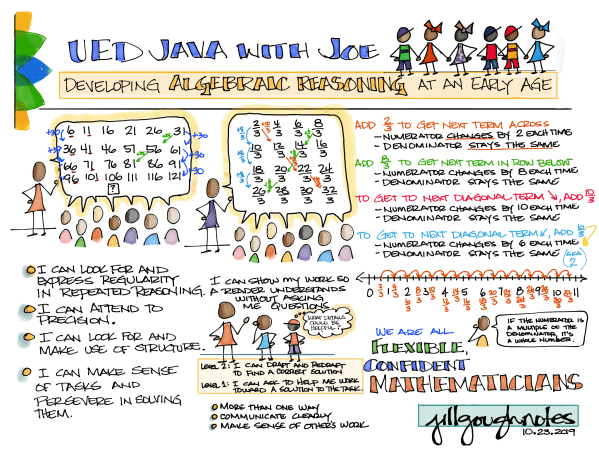 UED JAVA WITH JOE
DEVELOPING ALGEBRAIC REASONING AT AN EARLY AGE
6 11 16 21 26 31
36 41 46 51 56 61
66 71 76 81 86 91
96 101 106 111 116 121
?
+30 +30
2/3 4/3 6/3 8/3
10/3 12/3 14/3 16/3
18/3 20/3 22/3 24/3
26/3 28/3 30/3 32/3
ADD 2/3 TO GET NEXT TERM ACROSS
- NUMERATOR CHANGES BY 2 EACH TIME
- DENOMINATOR STAYS THE SAME
ADD 8/3 TO GET NEXT TERM IN ROW BELOW
- NUMERATOR CHANGES BY 8 EACH TIME
- DENOMINATOR STAYS THE SAME
TO GET TO NEXT DIAGONAL TERM ↘, ADD 10/3
- NUMERATOR CHANGES BY 10 EACH TIME
- DENOMINATOR STAYS THE SAME
TO GET TO NEXT DIAGONAL TERM ↙, ADD 6/3
- NUMERATOR CHANGES BY 6 EACH TIME
- DENOMINATOR STAYS THE SAME
(AKA 2)
0 1 2 3 4 5 6 7 8 9 10 11
I CAN LOOK FOR AND
EXPRESS REGULARITY
IN REPEATED REASONING.
I CAN ATTEND TO
PRECISION.
I CAN LOOK FOR AND
MAKE USE OF STRUCTURE.
I CAN MAKE SENSE
OF TASKS AND
PERSEVERE IN SOLVING
THEM.
I CAN SHOW MY WORK SO
A READER UNDERSTANDS
WITHOUT ASKING
ME QUESTIONS.
WHAT DETAILS
COULD BE
HELPFUL?
LEVEL 2: I CAN DRAFT AND REDRAFT
TO FIND A CORRECT SOLUTION
LEVEL 1: I CAN ASK TO HELP ME WORK
TOWARD A SOLUTION TO THE TASK.
MORE THAN ONE WAY
COMMUNICATE CLEARLY
MAKE SENSE OF OTHER'S WORK
IF THE NUMERATOR IS
A MULTIPLE OF THE
DENOMINATOR, IT'S
A WHOLE NUMBER.
WE ARE ALL
FLEXIBLE,
CONFIDENT
MATHEMATICIANS
jillgoughnotes
10.23.2019